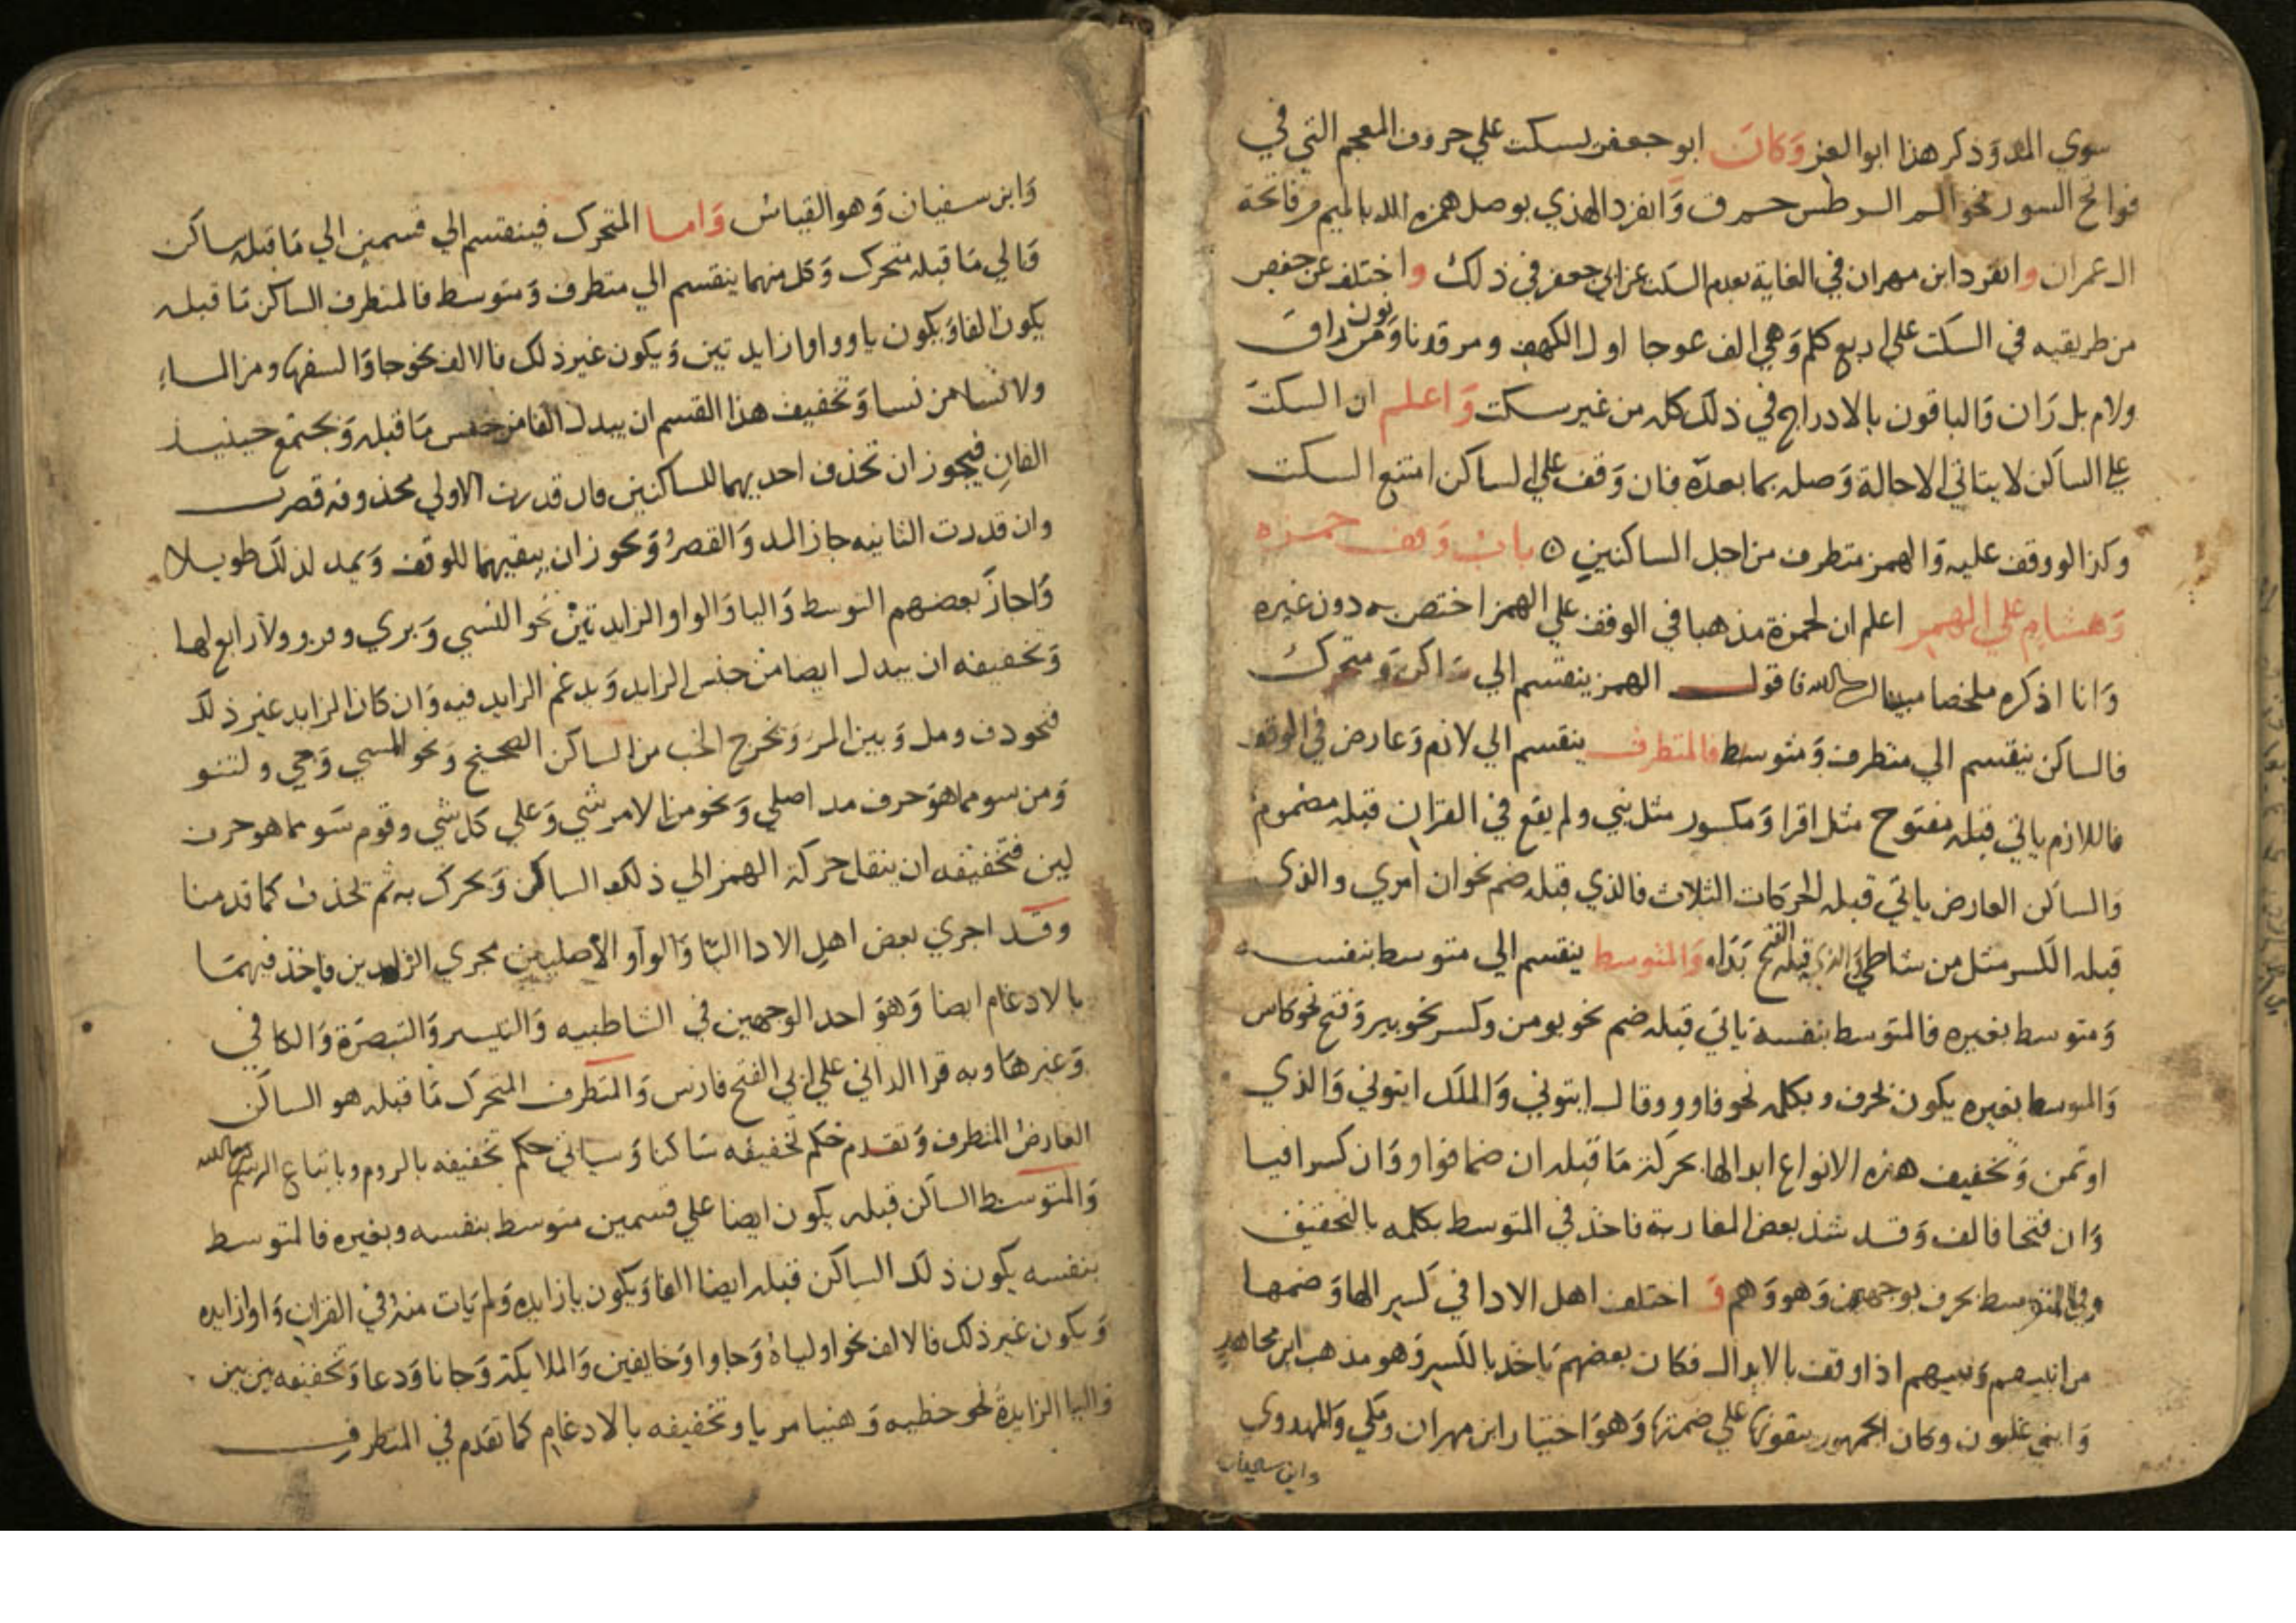 سوي المد وذكر هذا ابو العز وكان ابو جعفر يسكت علي حروف المعجم التي في
فواتح السور نحو الم الر طس حم ق وانفرد الهذلي بوصل همزه الله بالميم من فاتحة
ال عمران وانفرد ابن مهران في الغاية بعدم السكت عن ابي جعفر في ذلك واختلف عن حفص
من طريقيه في السكت علي اربع كلم وهي الف عوجا اول الكهف ومرقدنا ونون من راق
ولام بل ران والباقون بالادراج في ذلك كله من غير سكت واعلم ان السكت
علي الساكن لا يتاتي الا حالة وصله بما بعده فان وقف علي الساكن امتنع السكت
وكذا لو وقف عليه والهمز متطرف من اجل الساكنين ٥ باب وقف حمزه
وهشام علي الهمز اعلم ان لحمزة مذهبا في الوقف علي الهمز اختص به دون غيره
وانا اذكره ملخصا مبينا ان شا الله فاقول الهمز ينقسم الي ساكن ومتحرك
فالساكن ينقسم الي متطرف ومتوسط فالمتطرف ينقسم الي لازم وعارض في الوقف
فاللازم ياتي قبله مفتوح مثل اقرا ومكسور مثل نبي ولم يقع في القران قبله مضموم
والساكن العارض ياتي قبله الحركات الثلاث فالذي قبله ضم نحو ان امري والذي
قبله الكسر مثل من شاطي والذي قبله الفتح بداه والمتوسط ينقسم الي متوسط بنفسه
ومتوسط بغيره فالمتوسط بنفسه ياتي قبله ضم نحو يومن وكسر نحو بير وفتح نحو كاس
والمتوسط بغيره يكون بحرف وبكلمه نحو فاووا وقال ايتوني والملك ايتوني والذي
اوتمن وتخفيف هذه الانواع ابدالها بحركة ما قبله ان ضما فواو وان كسرا فيا
وان فتحا فالف وقد شذ بعض المغاربة فاخذ في المتوسط بكلمه بالتحقيق
وفي المتوسط بحرف بوجهين وهو وهم و اختلف اهل الادا في كسر الها وضمها
من انبيهم ونبيهم اذا وقف بالابدال فكان بعضهم ياخذ بالكسر وهو مذهب ابن مجاهد
وابني غلبون وكان الجمهور يبقونها علي ضمتها وهو اختيار ابن مهران ومكي والمهدوي
وابن سفيان
وابن سفيان وهو القياس واما المتحرك فينقسم الي قسمين الي ما قبله ساكن
والي ما قبله متحرك وكل منهما ينقسم الي متطرف ومتوسط فالمتطرف الساكن ما قبله
يكون الفا ويكون يا وواوا زايدتين ويكون غير ذلك فالالف نحو جا والسفها ومن الماء
ولا نسا من نسا وتخفيف هذا القسم ان يبدل الفا من جنس ما قبله ويجتمع حينيذ
الفان فيجوز ان تحذف احديهما للساكنين فان قدرت الاولي محذوفه قصرت
وان قدرت الثانيه جاز المد والقصر ويجوز ان يبقيهما للوقف ويمد لذلك طويلا
واجاز بعضهم التوسط واليا والواو الزايدتين نحو النسي وبري وقرو ولا رابع لها
وتخفيفه ان يبدل ايضا من جنس الزايد ويدغم الزايد فيه وان كان الزايد غير ذلك
فنحو دف ومل وبين المر ويخرج الخب من الساكن الصحيح ونحو المسي وجي ولتنو
ومن سو مما هو حرف مد اصلي ونحو من الامر شي وعلي كل شي وقوم سو مما هو حرف
لين فتخفيفه ان ينقل حركة الهمز الي ذلك الساكن ويحرك به ثم تحذف كما قدمنا
وقد اجري بعض اهل الادا اليا والواو الاصليين مجري الزايدين فاخذ فيهما
بالادغام ايضا وهو احد الوجهين في الشاطبيه والتيسير والتبصرة والكافي
وغيرها وبه قرا الداني علي ابي الفتح فارس والمتطرف المتحرك ما قبله هو الساكن
العارض المتطرف وتقدم حكم تخفيفه ساكنا وسياتي حكم تخفيفه بالروم وباتباع الرسم ان شا الله
والمتوسط الساكن قبله يكون ايضا علي قسمين متوسط بنفسه وبغيره فالمتوسط
بنفسه يكون ذلك الساكن قبله ايضا الفا ويكون يا زايده ولم يات منه في القران واوا زايده
ويكون غير ذلك فالالف نحو اولياه وجاوا وخايفين والملايكة وجانا ودعا وتخفيفه بين بين
واليا الزايدة نحو خطيه وهنيا مريا وتخفيفه بالادغام كما تقدم في المتطرف